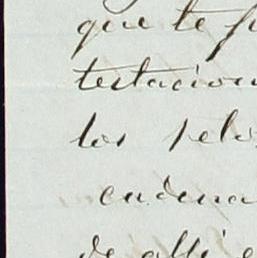 que te p
testacion
los pelo
cadena
de alli e